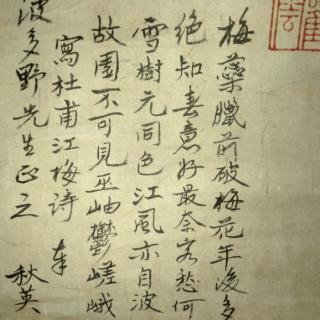 梅蘂臘前破梅花年後多
絕知春意好最奈客愁何
雪樹元同色江風亦自波
故園不可見巫岫鬱嵯峨
寫杜甫江梅詩 奉
波多野先生正之 秋英